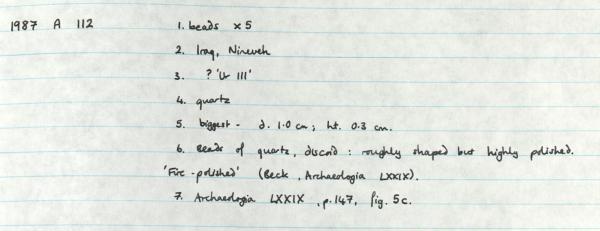 1987 A 112 1. beads x 5
2. Iraq, Nineveh
3. ? 'Ur III'
4. quartz
5. biggest - d. 1.0 cm; ht. 0.3 cm.
6. Beads of quartz, discoid : roughly shaped but highly polished.
'Fire-polished' (Beck, Archaeologia LXXIX).
7. Archaeologia LXXIX, p.147, fig. 5c.